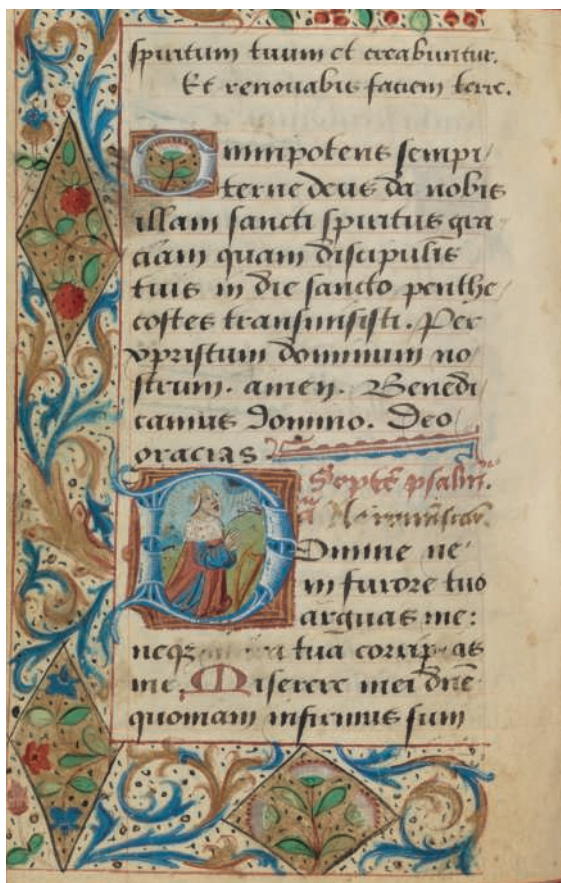 spiritum tuum et creabuntur.
Et renovabis faciem terre.
Omnipotens sempi/
terne deus da nobis
illam sancti spiritus gra
ciam quam discipulis
tuis in die sancto penthe/
costes transmisisti. Per
xpristum dominum no/
strum. amen. Benedi/
camus Domino. Deo
gracias.
Septē psalm.
Ne reminiscar.
Domine ne
in furore tuo
arguas me:
neqz in ira tua corripias
me. Miserere mei dn̄e
quoniam infirmus sum